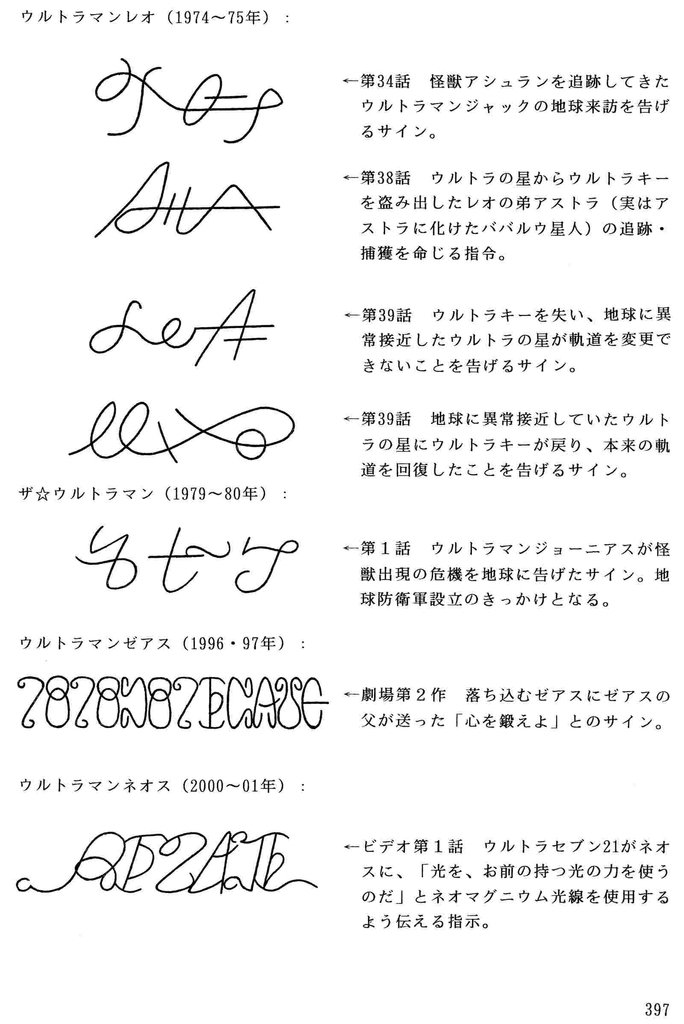 ウルトラマンレオ（1974～75年）：
←第34話　怪獣アシュランを追跡してきた
ウルトラマンジャックの地球来訪を告げ
るサイン。
←第38話　ウルトラの星からウルトラキー
を盗み出したレオの弟アストラ（実はア
ストラに化けたババルウ星人）の追跡・
捕獲を命じる指令。
←第39話　ウルトラキーを失い、地球に異
常接近したウルトラの星が軌道を変更で
きないことを告げるサイン。
←第39話　地球に異常接近していたウルト
ラの星にウルトラキーが戻り、本来の軌
道を回復したことを告げるサイン。
ザ☆ウルトラマン（1979～80年）：
←第１話　ウルトラマンジョーニアスが怪
獣出現の危機を地球に告げたサイン。地
球防衛軍設立のきっかけとなる。
ウルトラマンゼアス（1996・97年）：
←劇場第２作　落ち込むゼアスにゼアスの
父が送った「心を鍛えよ」とのサイン。
ウルトラマンネオス（2000～01年）：
←ビデオ第１話　ウルトラセブン21がネオ
スに、「光を、お前の持つ光の力を使う
のだ」とネオマグニウム光線を使用する
よう伝える指示。
397